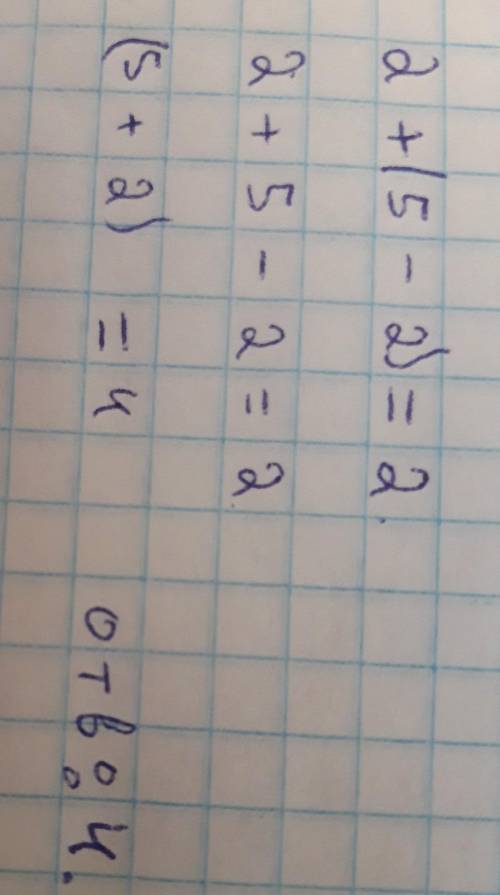 2 + (5 - 2) = 2.
2 + 5 - 2 = 2
(5 + 2) = 4 отв: 4.